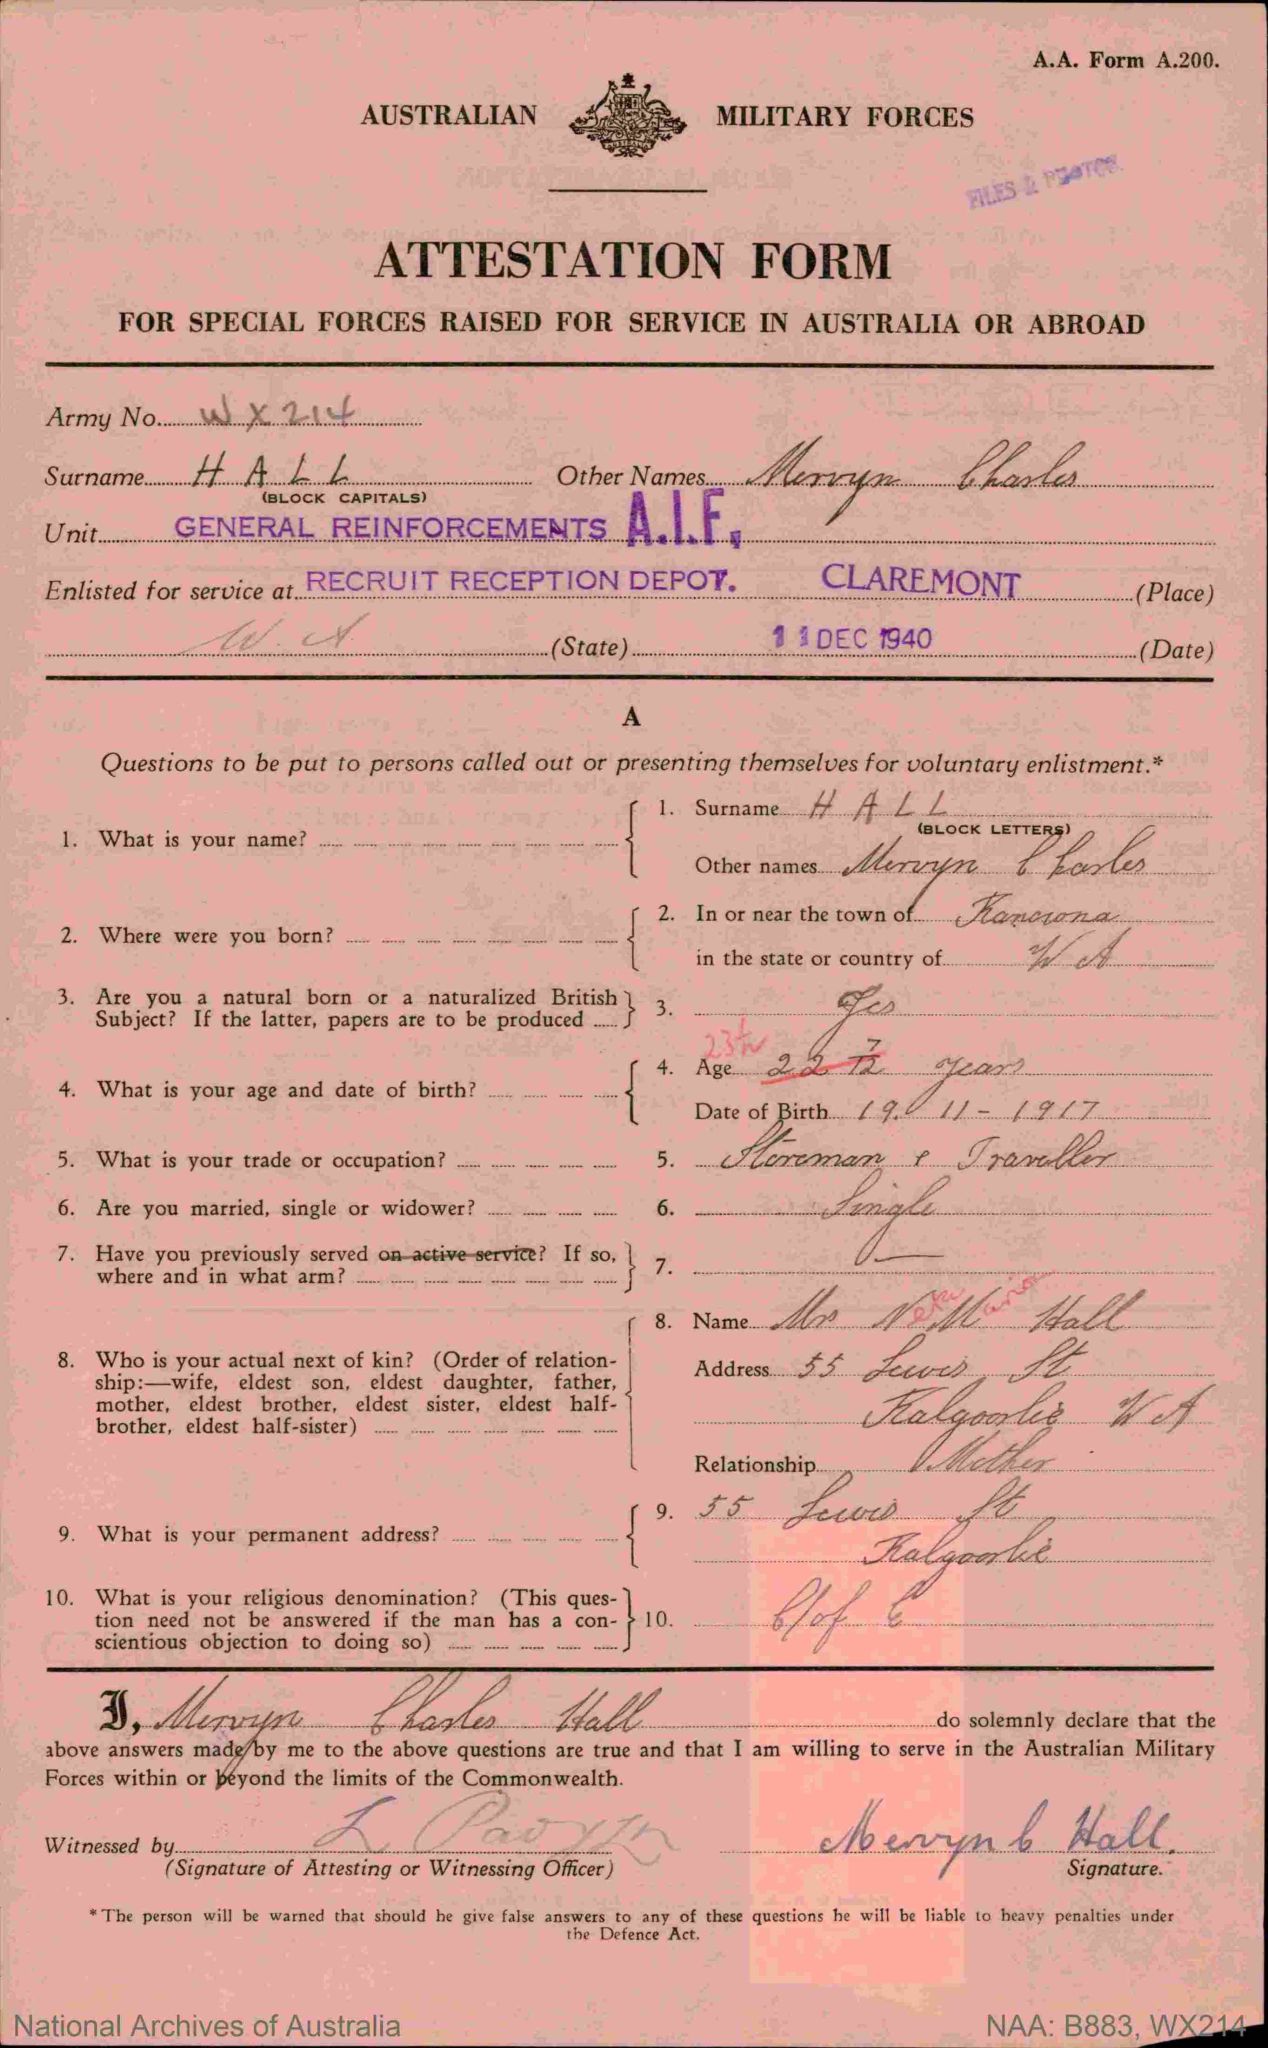 A.A. Form A.200.
AUSTRALIAN MILITARY FORCES
FILES & PHOTOS
ATTESTATION FORM
FOR SPECIAL FORCES RAISED FOR SERVICE IN AUSTRALIA OR ABROAD
Army No. WX214
Surname HALL Other Names Mervyn Charles
(BLOCK CAPITALS)
Unit GENERAL REINFORCEMENTS A.I.F.
Enlisted for service at RECRUIT RECEPTION DEPOT. CLAREMONT (Place)
W. A (State) 11 DEC 1940 (Date)
A
Questions to be put to persons called out or presenting themselves for voluntary enlistment.*
1. What is your name? 1. Surname HALL
(BLOCK LETTERS)
Other names Mervyn Charles
2. Where were you born? 2. In or near the town of Kanowna
in the state or country of W A
3. Are you a natural born or a naturalized British Subject? If the latter, papers are to be produced 3. Yes
4. What is your age and date of birth? 4. Age 22 7/12 years
Date of Birth 19. 11 - 1917
5. What is your trade or occupation? 5. Storeman & Traveller
6. Are you married, single or widower? 6. Single
7. Have you previously served on active service? If so, where and in what arm? 7. —
8. Who is your actual next of kin? (Order of relation-
ship:—wife, eldest son, eldest daughter, father,
mother, eldest brother, eldest sister, eldest half-
brother, eldest half-sister)
8. Name Mrs Neta Marion Hall
Address 55 Lewis St
Kalgoorlie W A
Relationship Mother
9. What is your permanent address? 9. 55 Lewis St
Kalgoorlie
10. What is your religious denomination? (This ques-
tion need not be answered if the man has a con-
scientious objection to doing so) 10. C/of E
I, Mervyn Charles Hall do solemnly declare that the
above answers made by me to the above questions are true and that I am willing to serve in the Australian Military
Forces within or beyond the limits of the Commonwealth.
Witnessed by L Mervyn C Hall.
(Signature of Attesting or Witnessing Officer) Signature.
*The person will be warned that should he give false answers to any of these questions he will be liable to heavy penalties under
the Defence Act.
National Archives of Australia NAA: B883, WX214